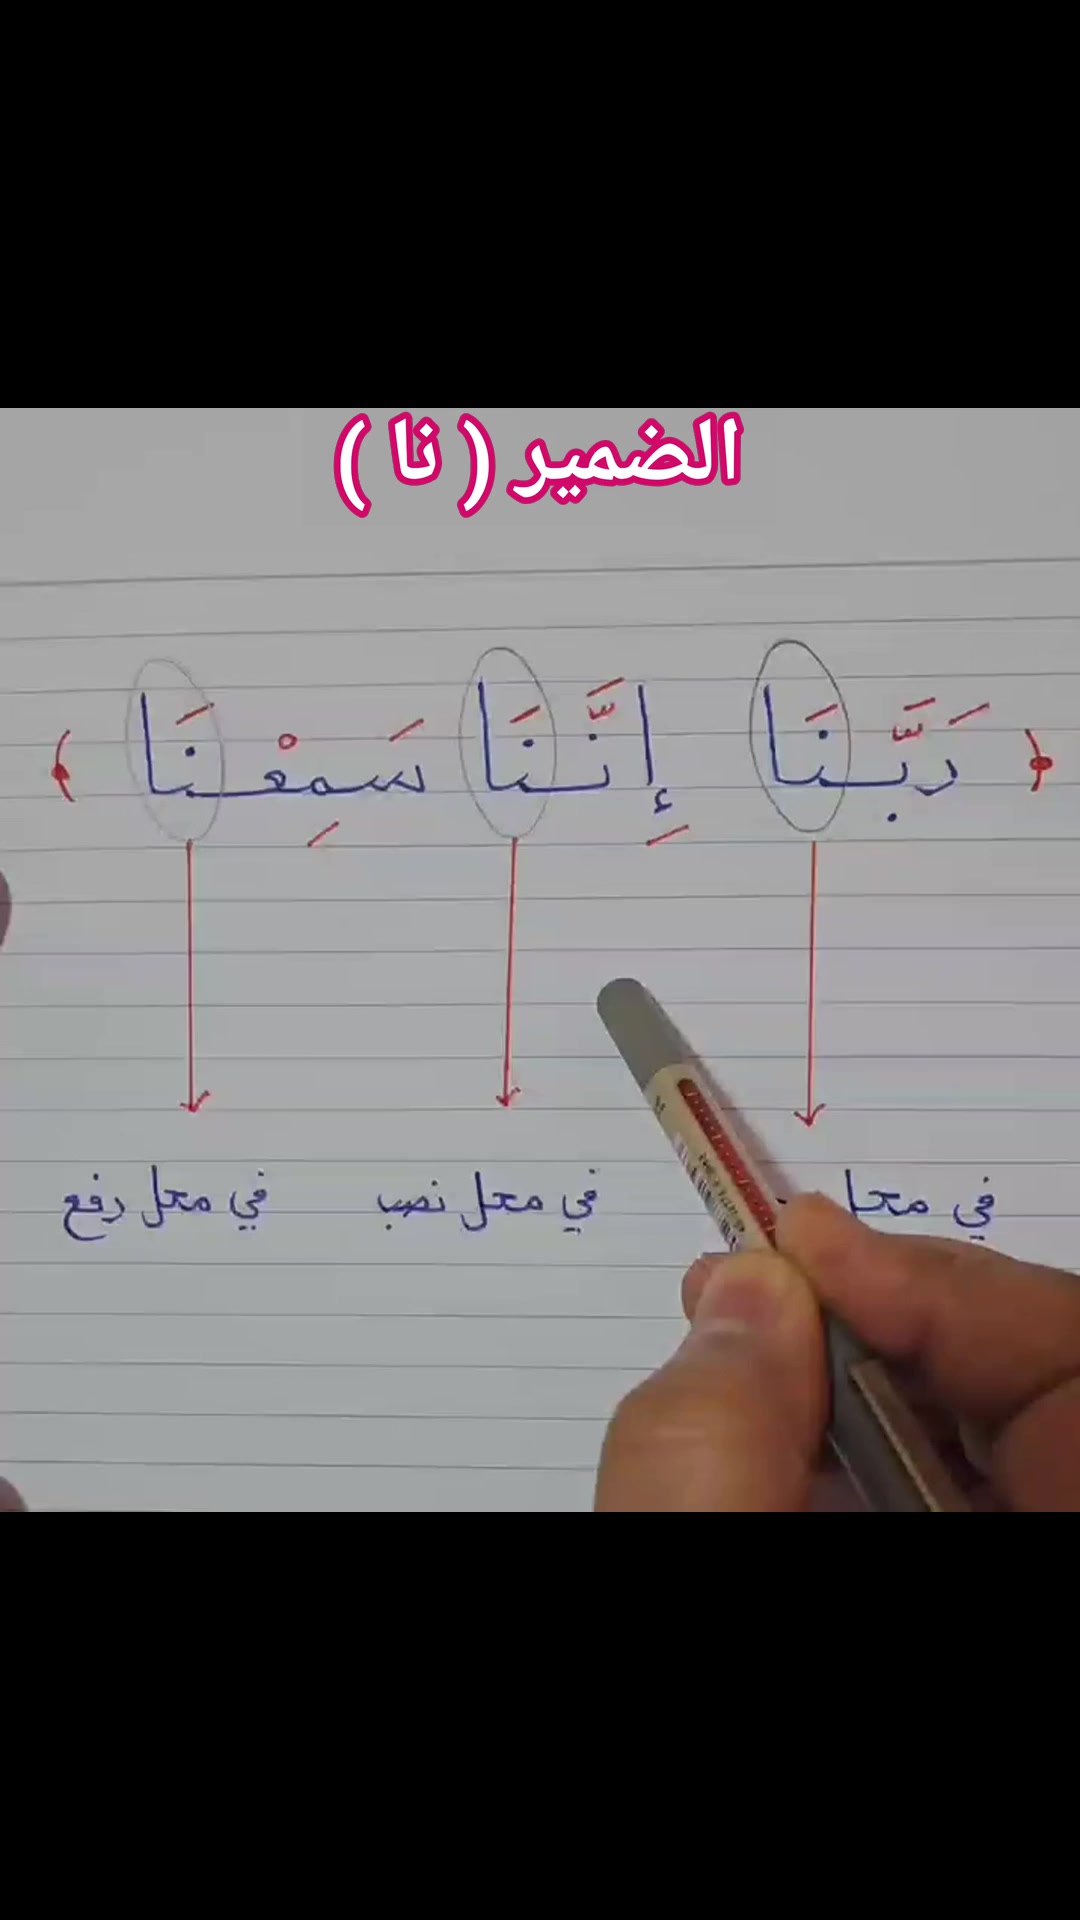 الضمير ( نا )
﴿ رَبَّنَا إِنَّنَا سَمِعْنَا ﴾
في محل في محل نصب في محل رفع